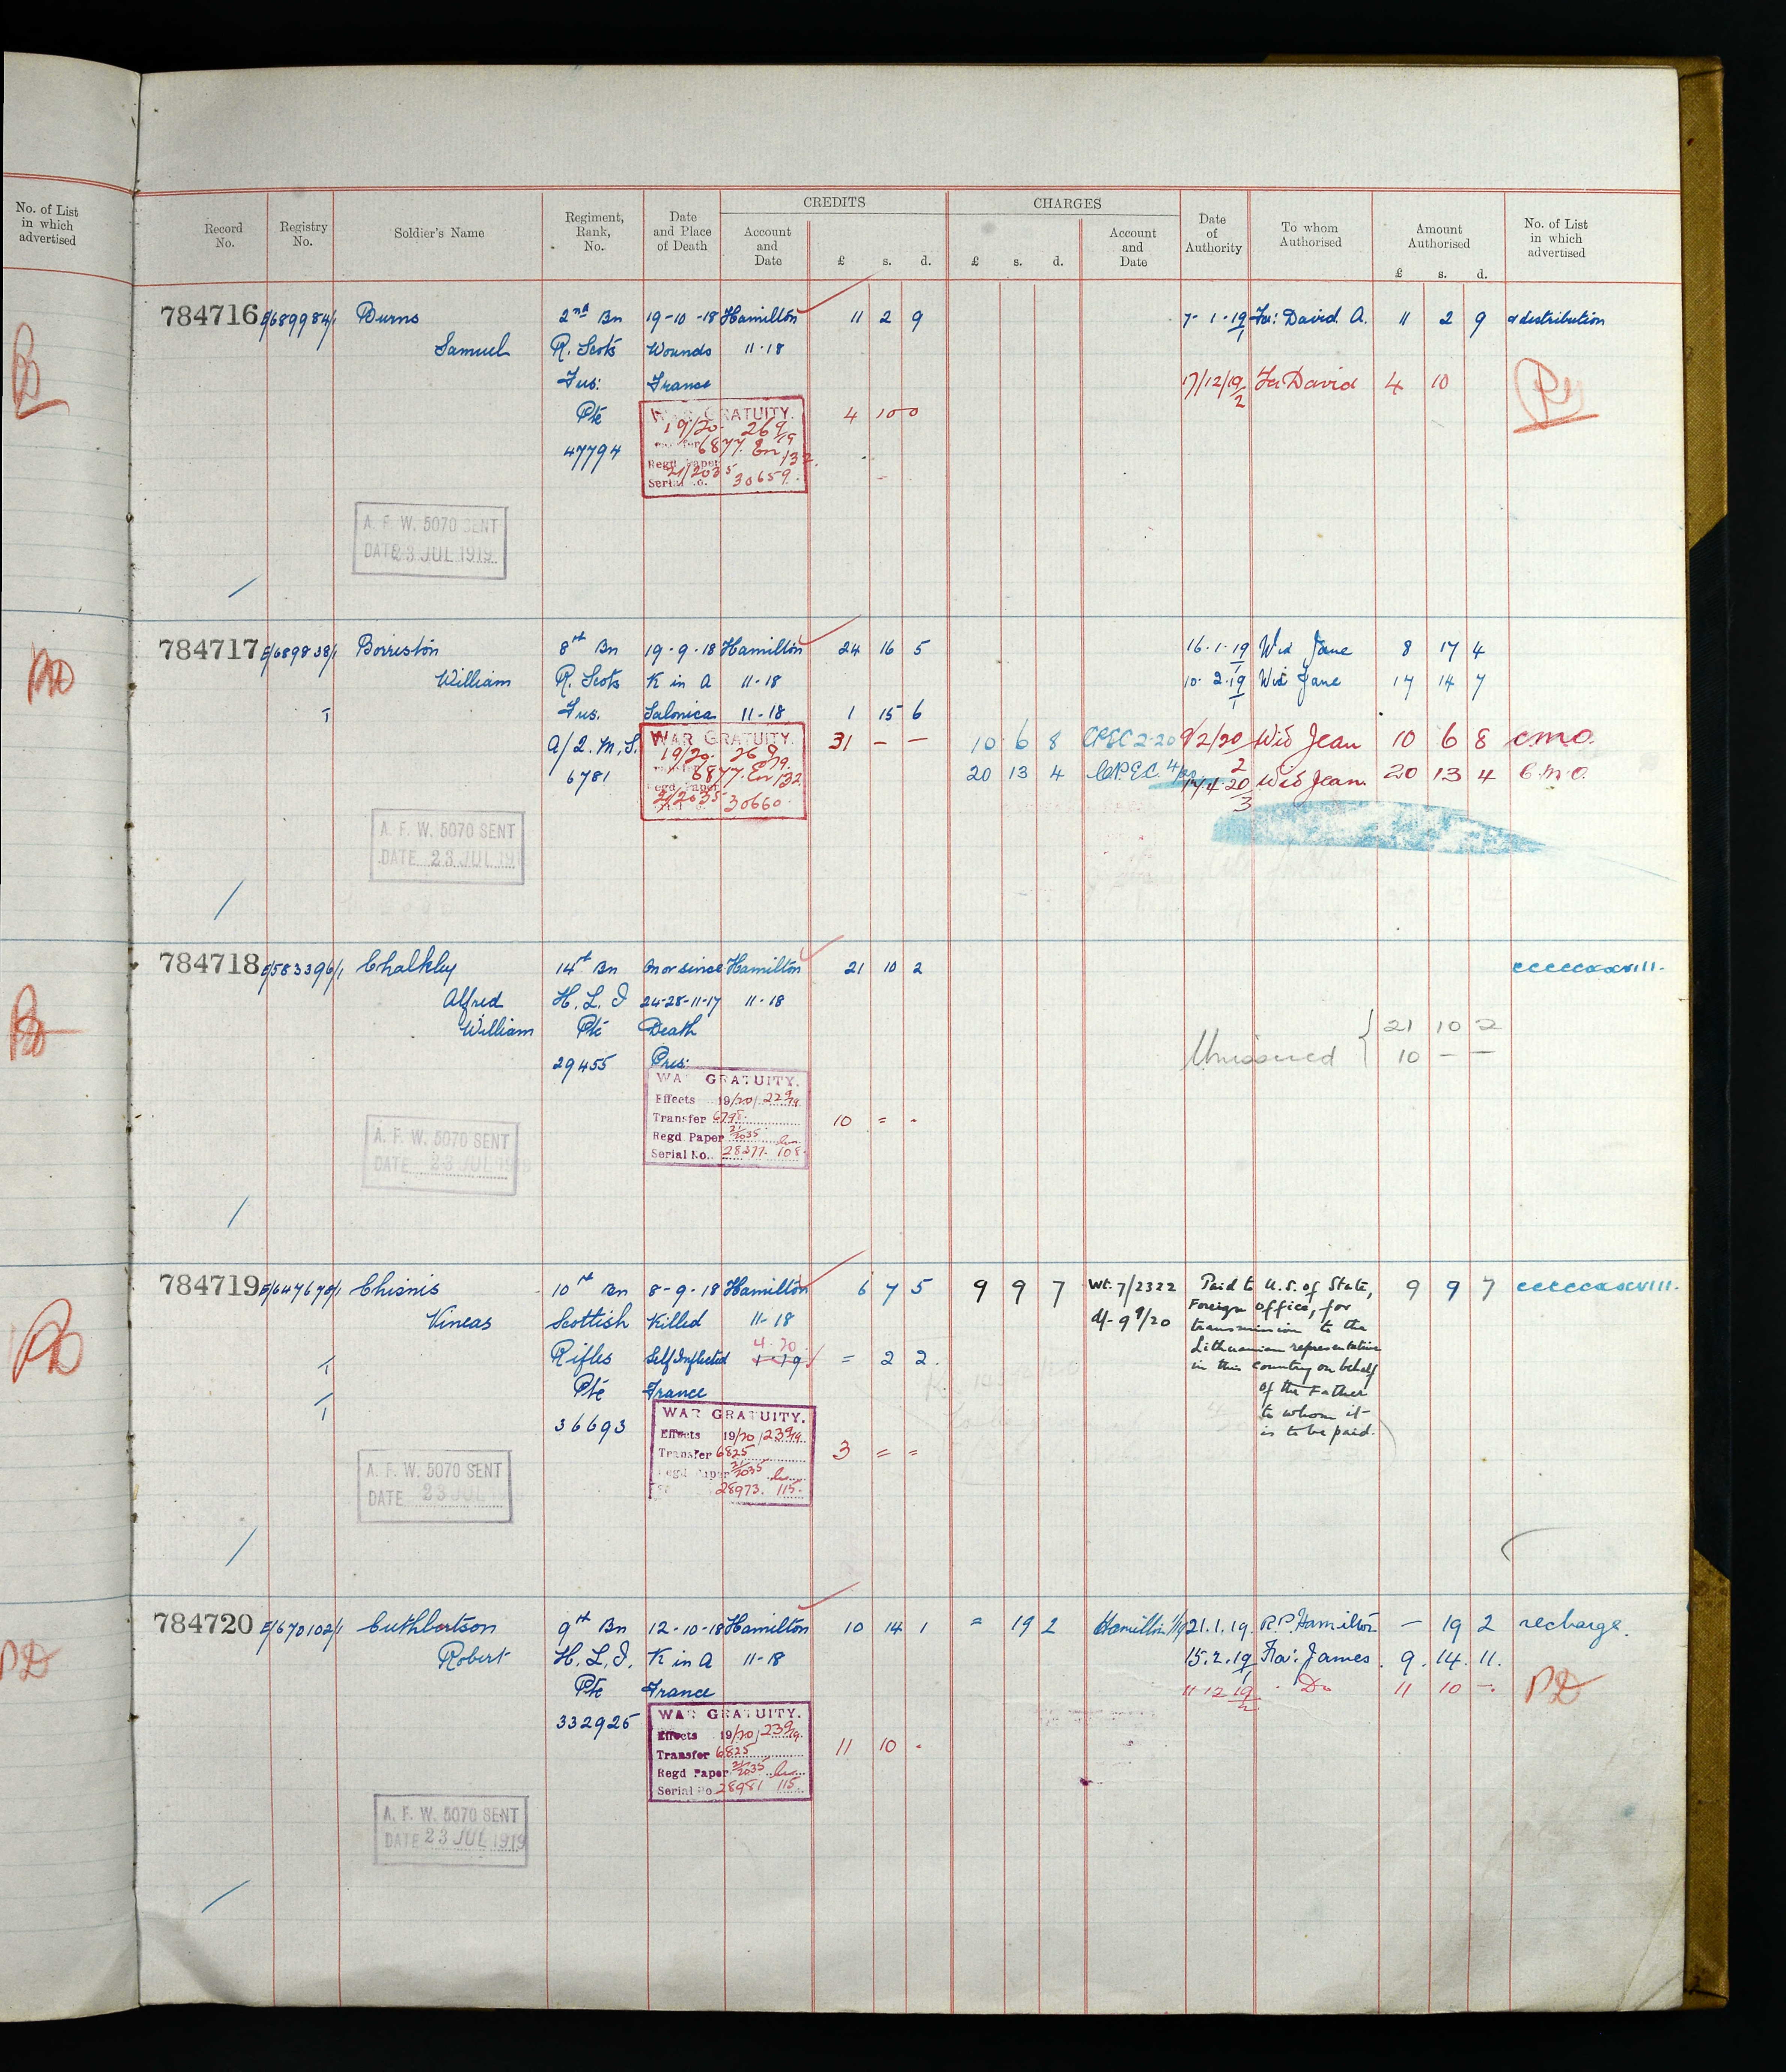 No. of List
in which
advertised
CREDITS CHARGES
Record No. Registry No. Soldier's Name Regiment, Rank, No. Date and Place of Death Account and Date £ s. d. £ s. d. Account and Date Date of Authority To whom Authorised Amount Authorised £ s. d. No. of List in which advertised
784716 E/689984/1 Burns 2nd Bn 19-10-18 Hamilton 11 2 9 7-1-19/1 Fa: David A. 11 2 9 & distribution
Samuel R. Scots Wounds 11-18
Fus: France 17/12/19/2 Fa David 4 10
Pte WAR GRATUITY. 4 10 0
47794 19/20 269/19
6877 En 132
Regd Paper 21/2035
Serial No. 30659
A. F. W. 5070 SENT
DATE 23 JUL 1919
784717 E/689838/1 Borriston 8th Bn 19-9-18 Hamilton 24 16 5 16-1-19/1 Wid Jane 8 17 4
William R. Scots K in A 11-18 10-2-19/1 Wid Jane 17 14 7
T Fus. Salonica 11-18 1 15 6
A/Q.M.S. WAR GRATUITY. 31 - - 10 6 8 CPEC 2-20 9/2/20/2 Wid Jean 10 6 8 CMO.
6781 19/20 269/19 20 13 4 C.P.E.C. 4/20 17/4/20/3 Wid Jean 20 13 4 C.M.O.
6877 En 132
Regd Paper
21/2035 30660
A. F. W. 5070 SENT
DATE 23 JUL 191
784718 E/583396/1 Chalkley 14th Bn On or since Hamilton 21 10 2 cccccxxxviii.
Alfred H. L. I 24-28-11-17 11-18
William Pte Death 21 10 2
29455 Pres: Unissued 10 - -
WAR GRATUITY.
Effects 19/20/229/19
Transfer 6798 10 = -
Regd Paper 21/2035
Serial No. 28377 108
A. F. W. 5070 SENT
DATE 23 JUL 1919
784719 E/647670/1 Chisnis 10th Bn 8-9-18 Hamilton 6 7 5 9 9 7 Wt. 7/2322 Paid to U.S. of State, 9 9 7 cccccxxxviii.
Vineas Scottish Killed 11-18 d/- 9 9/20 Foreign Office, for
Rifles Self Inflicted 4-20 1-19 = 2 2. transmission to the
Pte France Lithuanian representative
T in this country on behalf
T of the Father
36693 to whom it
is to be paid.
WAR GRATUITY.
Effects 19/20/239/19
Transfer 6825 3 = =
Regd Paper 21/2035
28973 115
A. F. W. 5070 SENT
DATE 23 JUL
784720 E/670102/1 Cuthbertson 9th Bn 12-10-18 Hamilton 10 14 1 = 19 2 Hamilton 11/19 21.1.19 R.P. Hamilton - 19 2 recharge.
Robert H. L. I. K in A 11-18 15.2.19/1 Fa: James 9 14 11
Pte France 11-12-19/2 Do 11 10 - PD
332925 WAR GRATUITY.
Effects 19/20/239/19
Transfer 6825 11 10 -
Regd Paper 21/2035
Serial No 28981 115
A. F. W. 5070 SENT
DATE 23 JUL 1919